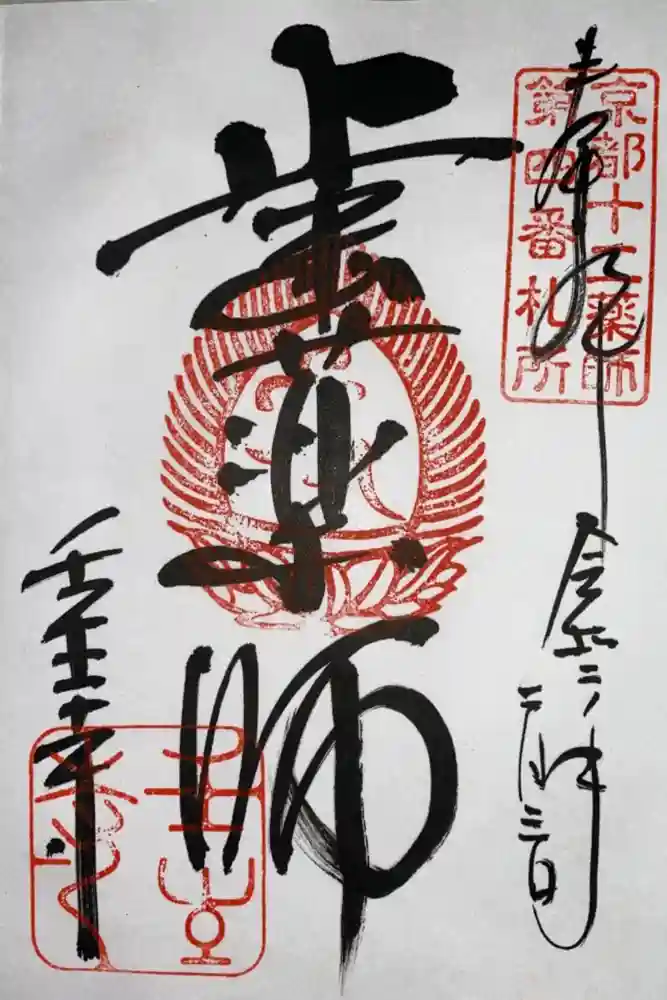 奉拝
京都十二薬師
第四番札所
令和二年
二月三日
歯薬師
壬生寺